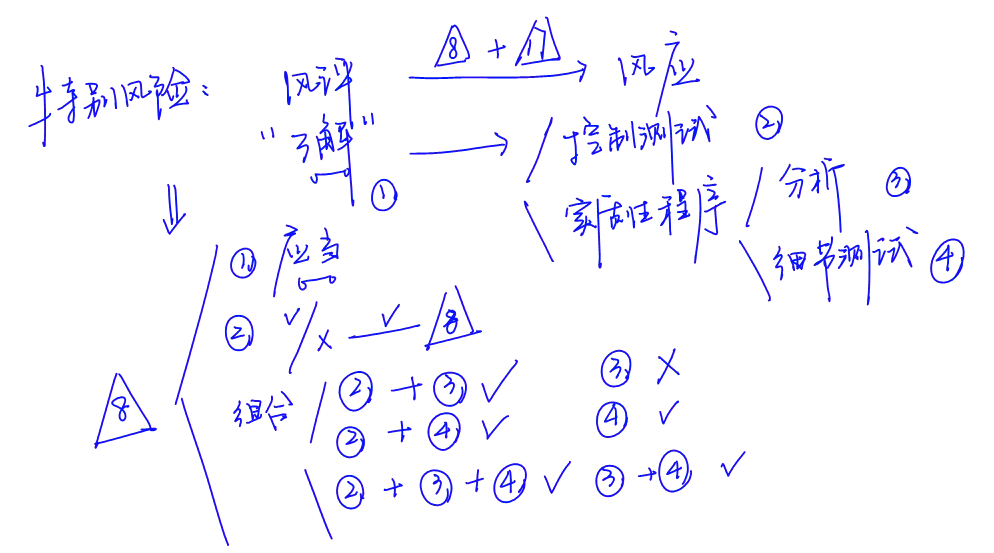 特别风险: 风评 8 + 11 风应
"了解" ① 控制测试 ②
实质性程序 分析 ③
细节测试 ④
① 应当
② ✓/× ✓ 8
8 组合 ② + ③ ✓ ③ ×
② + ④ ✓ ④ ✓
② + ③ + ④ ✓ ③ + ④ ✓